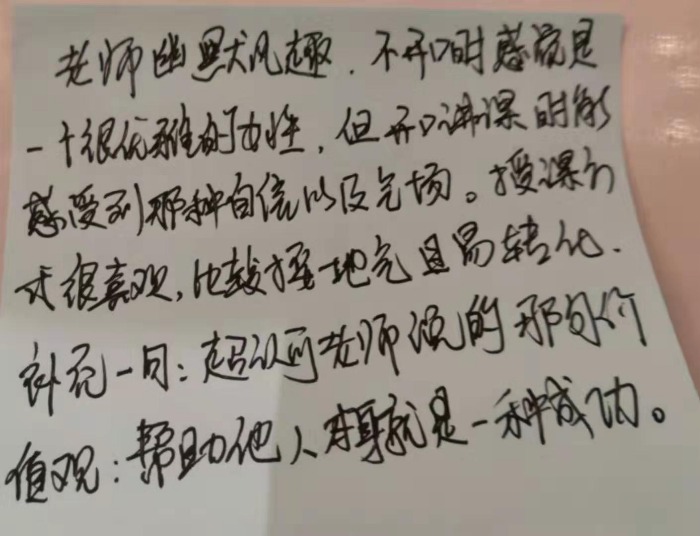 老师幽默风趣，不开口时感觉是
一个很优雅的女性，但开口讲课时能
感受到那种自信以及气场。授课方
式很喜欢，比较接地气且易转化.
补充一句：超认可老师说的那句价
值观：帮助他人本身就是一种成功。